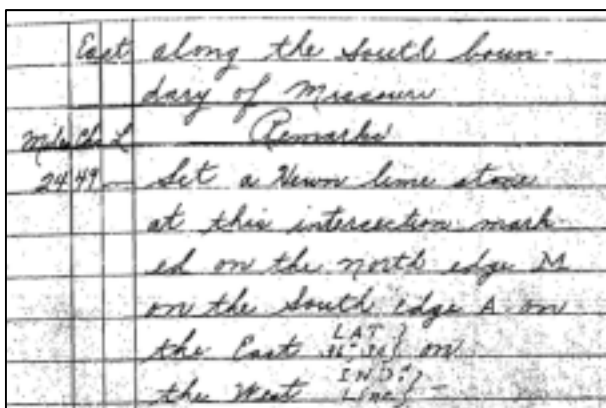 East along the South boun-
dary of Missouri
Miles Chs L Remarks
24 49 — Set a Hewn lime stone
at this intersection mark-
ed on the north edge M
on the South edge A on
the East LAT 36° 30' } on
the West IND: LINE } -